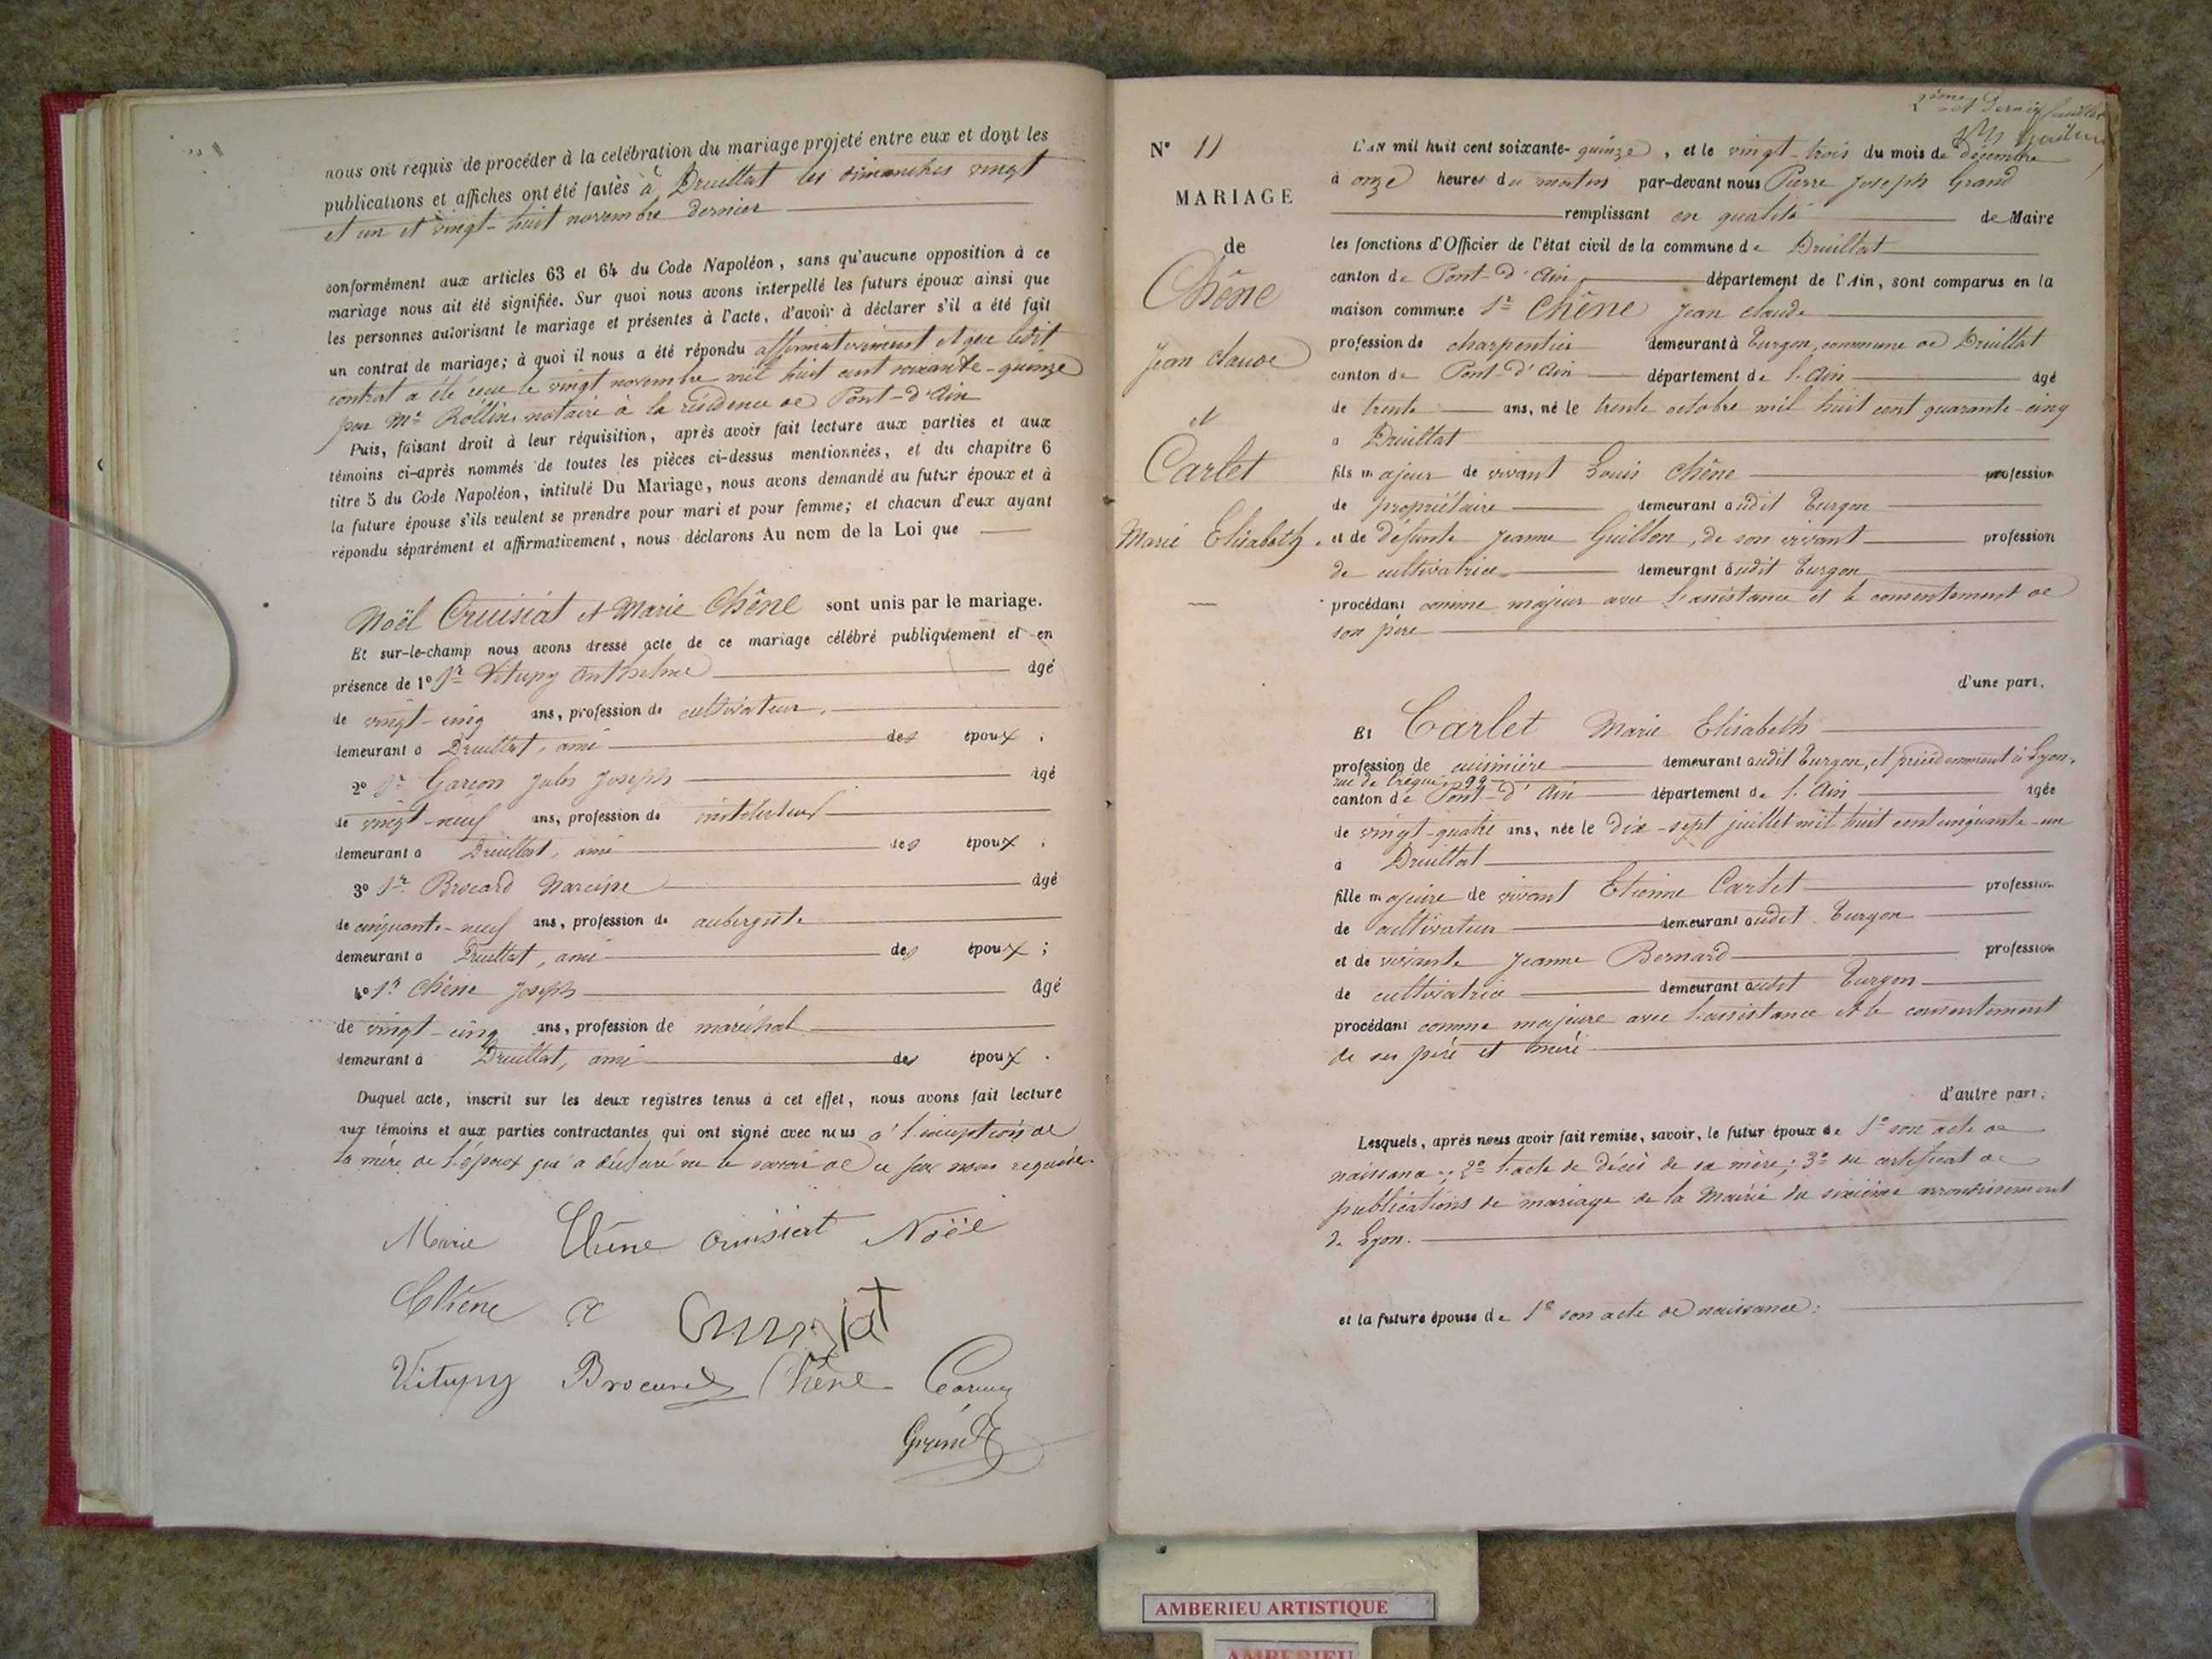 nous ont requis de procéder à la celébration du mariage projeté entre eux et dont les
publications et affiches ont été faites à Druillat les dimanches vingt
et un et vingt-huit novembre dernier
conformément aux articles 63 et 64 du Code Napoléon, sans qu'aucune opposition à ce
mariage nous ait été signifiée. Sur quoi nous avons interpellé les futurs époux ainsi que
les personnes autorisant le mariage et présentes à l'acte, d'avoir à déclarer s'il a été fait
un contrat de mariage; à quoi il nous a été répondu affirmativement et que ledit
contrat a été reçu le vingt novembre mil huit cent soixante-quinze
par Me Rollin, notaire à la résidence de Pont-d'Ain
Puis, faisant droit à leur réquisition, après avoir fait lecture aux parties et aux
témoins ci-après nommés de toutes les pièces ci-dessus mentionnées, et du chapitre 6
titre 5 du Code Napoléon, intitulé Du Mariage, nous avons demandé au futur époux et à
la future épouse s'ils veulent se prendre pour mari et pour femme; et chacun d'eux ayant
répondu séparément et affirmativement, nous déclarons Au nom de la Loi que
Noël Cruisiat et Marie Chêne sont unis par le mariage.
Et sur-le-champ nous avons dressé acte de ce mariage célébré publiquement et en
présence de 1º Sr Vitupy Anthelme âgé
de vingt-cinq ans, profession de cultivateur,
demeurant à Druillat, ami des époux ;
2º Sr Garçon Jules Joseph âgé
de vingt-neuf ans, profession de instituteur
demeurant à Druillat, ami des époux ;
3º Sr Brocard Narcisse âgé
de cinquante-neuf ans, profession de aubergiste
demeurant à Druillat, ami des époux ;
4º Sr Chêne Joseph âgé
de vingt-cinq ans, profession de maréchal
demeurant à Druillat, ami des époux .
Duquel acte, inscrit sur les deux registres tenus à cet effet, nous avons fait lecture
aux témoins et aux parties contractantes qui ont signé avec nous à l'exception de
la mère de l'époux qui a déclaré ne le savoir de ce par nous requise.
Marie Chêne Cruisiat Noël
Chêne Cruisiat
Vitupy Brocard Chêne
Grand
2ème et Dernier feuillet
Nº 11
MARIAGE
de
Chêne
Jean Claude
et
Carlet
Marie Elisabeth.
L'AN mil huit cent soixante-quinze, et le vingt-trois du mois de décembre
à onze heures du matin par-devant nous Pierre Joseph Grand
remplissant en qualité de Maire
les fonctions d'Officier de l'état civil de la commune de Druillat
canton de Pont-d'Ain, département de l'Ain, sont comparus en la
maison commune Sr Chêne Jean Claude
profession de charpentier demeurant à Turgon, commune de Druillat
canton de Pont-d'Ain département de l'Ain âgé
de trente ans, né le trente octobre mil huit cent quarante-cinq
à Druillat
fils majeur de vivant Louis Chêne profession
de propriétaire demeurant audit Turgon
et de défunte Jeanne Guillon, de son vivant profession
de cultivatrice demeurant audit Turgon
procédant comme majeur avec l'assistance et le consentement de
son père
d'une part,
Et Carlet Marie Elisabeth
profession de cuisinière demeurant audit Turgon, et précédemment à Lyon,
rue de Créqui, 99
canton de Pont-d'Ain département de l'Ain âgée
de vingt-quatre ans, née le dix-sept juillet mil huit cent cinquante-un
à Druillat
fille majeure de vivant Etienne Carlet profession
de cultivateur demeurant audit Turgon
et de vivante Jeanne Bernard profession
de cultivatrice demeurant audit Turgon
procédant comme majeure avec l'assistance et le consentement
de ses père et mère
d'autre part,
Lesquels, après nous avoir fait remise, savoir, le futur époux de 1º son acte de
naissance; 2º l'acte de décès de sa mère; 3º un certificat de
publications de mariage de la Mairie du sixième arrondissement
de Lyon.
et la future épouse de 1º son acte de naissance:
AMBERIEU ARTISTIQUE
AMBERIEU